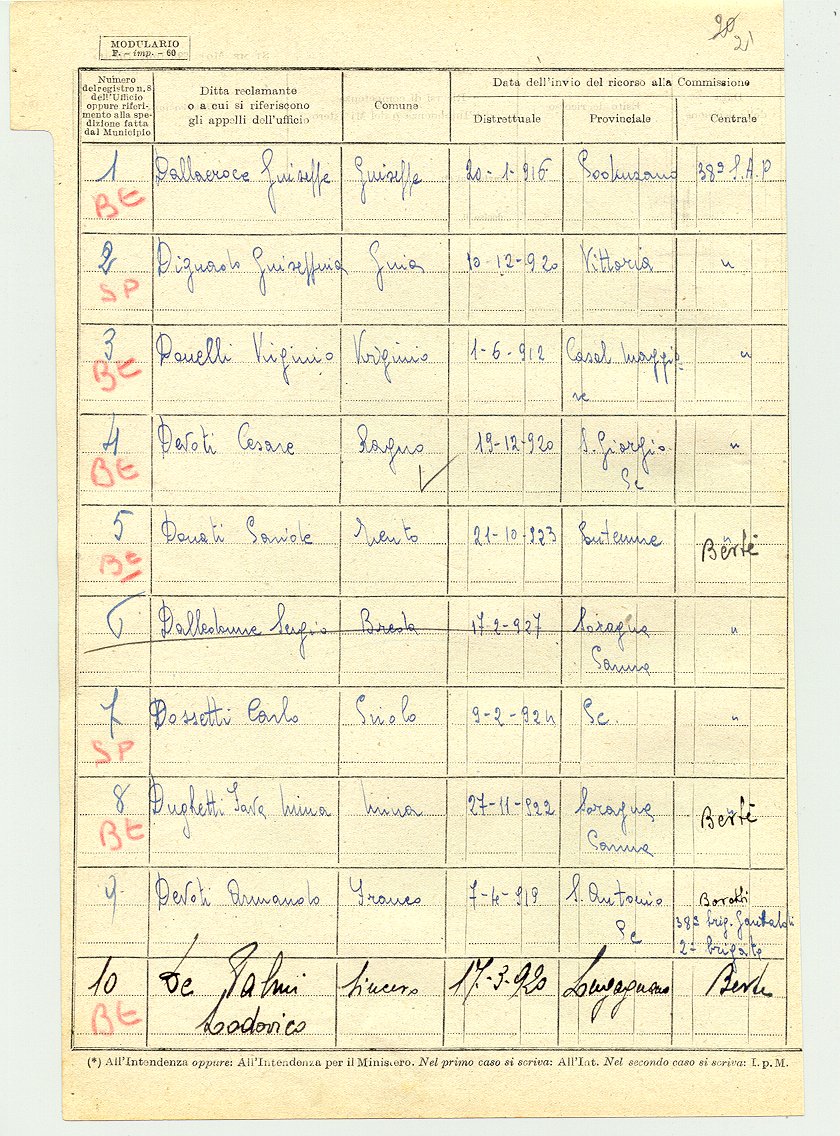 20
21
MODULARIO
F. - imp. - 60
Numero
del registro n. 8
dell'Ufficio
oppure riferi-
mento alla spe-
dizione fatta
dal Municipio
Ditta reclamante
o a cui si riferiscono
gli appelli dell'ufficio
Comune
Data dell'invio del ricorso alla Commissione
Distrettuale
Provinciale
Centrale
1 Dallacroce Guiseffe Guiseffe 20-1-916 38ª S.A.P
BE
2 Guiseffina Guia 10-12-920 Vittoria "
SP
3 Donelli Virginio Virginio 1-6-912 Casal maggio
re "
BE
4 Devoti Cesare Ragno 19-12-920 S. Giorgio
Pc "
BE
5 Donati 21-10-923 Bertè
BE
6 Dalledonne Sergio Breda 17-2-927 Soragna
Parma "
7 Dossetti Carlo 9-2-924 Pc. "
SP
8 Dughetti Mina 27-11-922 Soragna
Parma Bertè
BE
9 Devoti Armando Franco 7-4-919 S. Antonio
Pc
38ª brig. Garibaldi
2ª brigata
10 De Palmi
Lodovico Sincero 17-3-920 Lugagnano Bertè
BE
(*) All'Intendenza oppure: All'Intendenza per il Ministero. Nel primo caso si scriva: All'Int. Nel secondo caso si scriva: I. p. M.